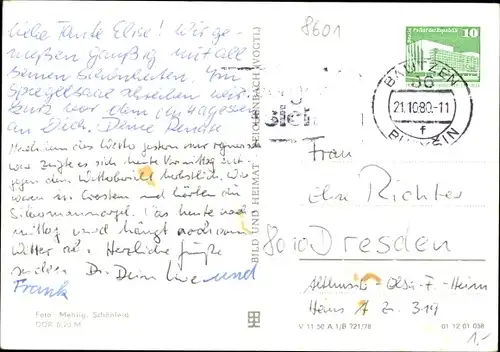 Liebe Tante Else! Wir ge-
nießen Graußig mit all
seinen Schönheiten. Im
Spiegelsaale schreiben wir
kurz vor dem Mittagessen
an Dich. Deine Renate
Nachdem das Wetter gestern nur regnerisch
war zeigte es sich heute Vormittag ent-
gegen den Wetterbericht herbstlich. Wir
waren in Crostau und hörten die
Silbermannorgel. Das heute nach-
mittag wird hängt noch vom
Wetter ab. Herzliche Grüße
senden Dir Dein Uwe und
Frank
Foto: Mehlig, Schönfeld
DDR 0,20 M
BILD UND HEIMAT REICHENBACH (VOGTL)
8601
Palast der Republik
10
BAUTZEN
21.10.80-11
f
BUDYŠIN
Frau
Else Richter
8010 Dresden
Heim
Haus A Zi. 319
V 11 50 A 1/B 721/78
01 12 01 038
1,-